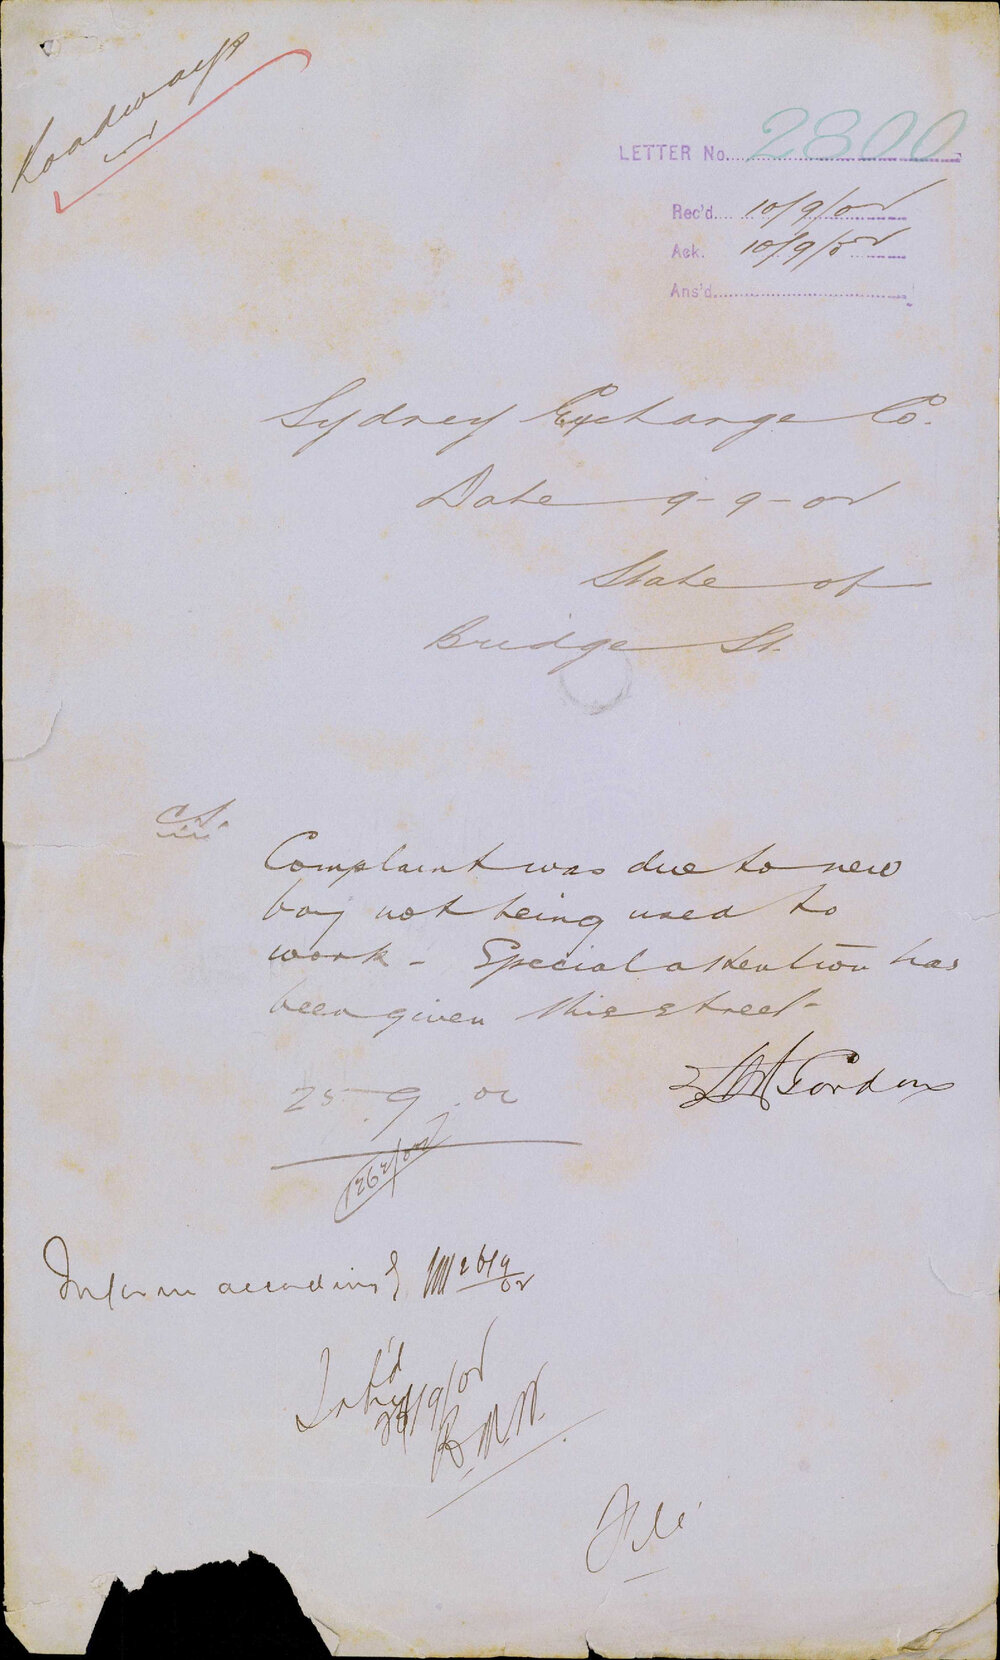 Roadways
LETTER No. 2800
Rec'd. 10/9/02
Ack. 10/9/02
Ans'd.
Sydney Exchange Co.
Date 9-9-02
State of
Bridge St.
Complaint was due to new
boy not being used to
work - Special attention has
been given this street -
Gordon
25 9 02
1262/02
Inform accordingly 26/9/02
Inf'd
/9/02
File